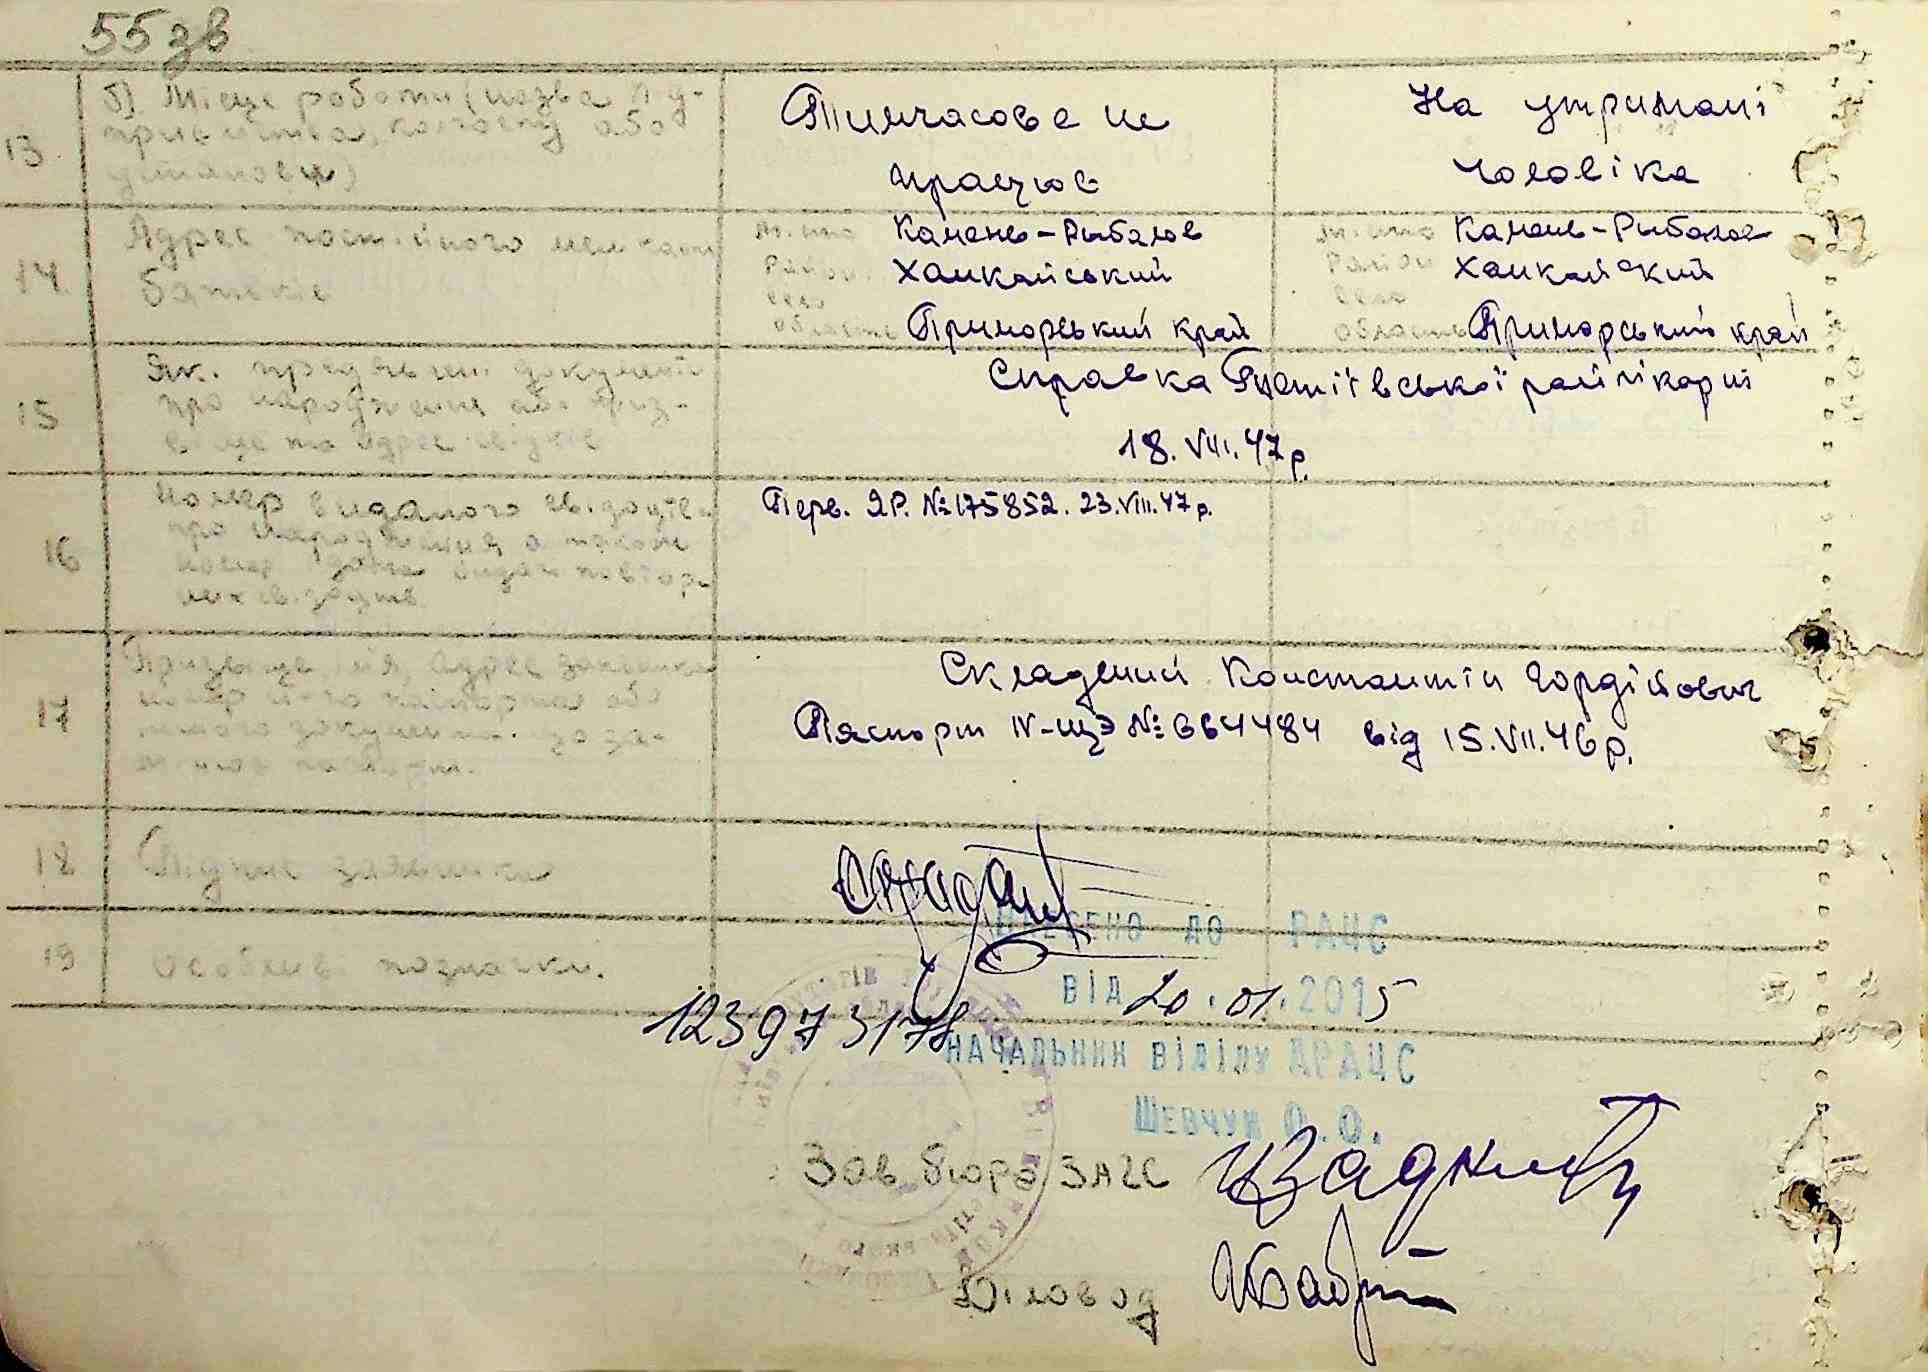 55зв
13
б). Місце роботи (назва під-
приємства, колгоспу або
установи)
Тимчасове не
працює
На утримані
чоловіка
14.
Адрес пост.йного мешкан
батьків
місто Камень-Рыболов
Район Ханкайський
село
область Приморський край
місто Камень-Рыболов
Район Ханкайский
село
область Приморський край
15
Як. пред'явлені документи
про народження або
Справка райлікарні
18.VIII.47р.
16
Номер виданого
про народження а також
Перв. ЯР. № 175852. 23.VIII.47р.
17
Призвище ім'я, адрес заявника
номер його паспорта або
іншого документа. що за-
Складений Константін Гордійович
Паспорт IV-ЩЭ № 664484 від 15.VII.46р.
18
Підпис заявника
19
Особлив. позначки.
ВНЕСЕНО ДО РАЦС
ВІД 20.01.2015
123973178
НАЧАЛЬНИК ВІДІЛУ ДРАЦС
ШЕВЧУК О.О.
Зав. бюро ЗАГС
Діловод